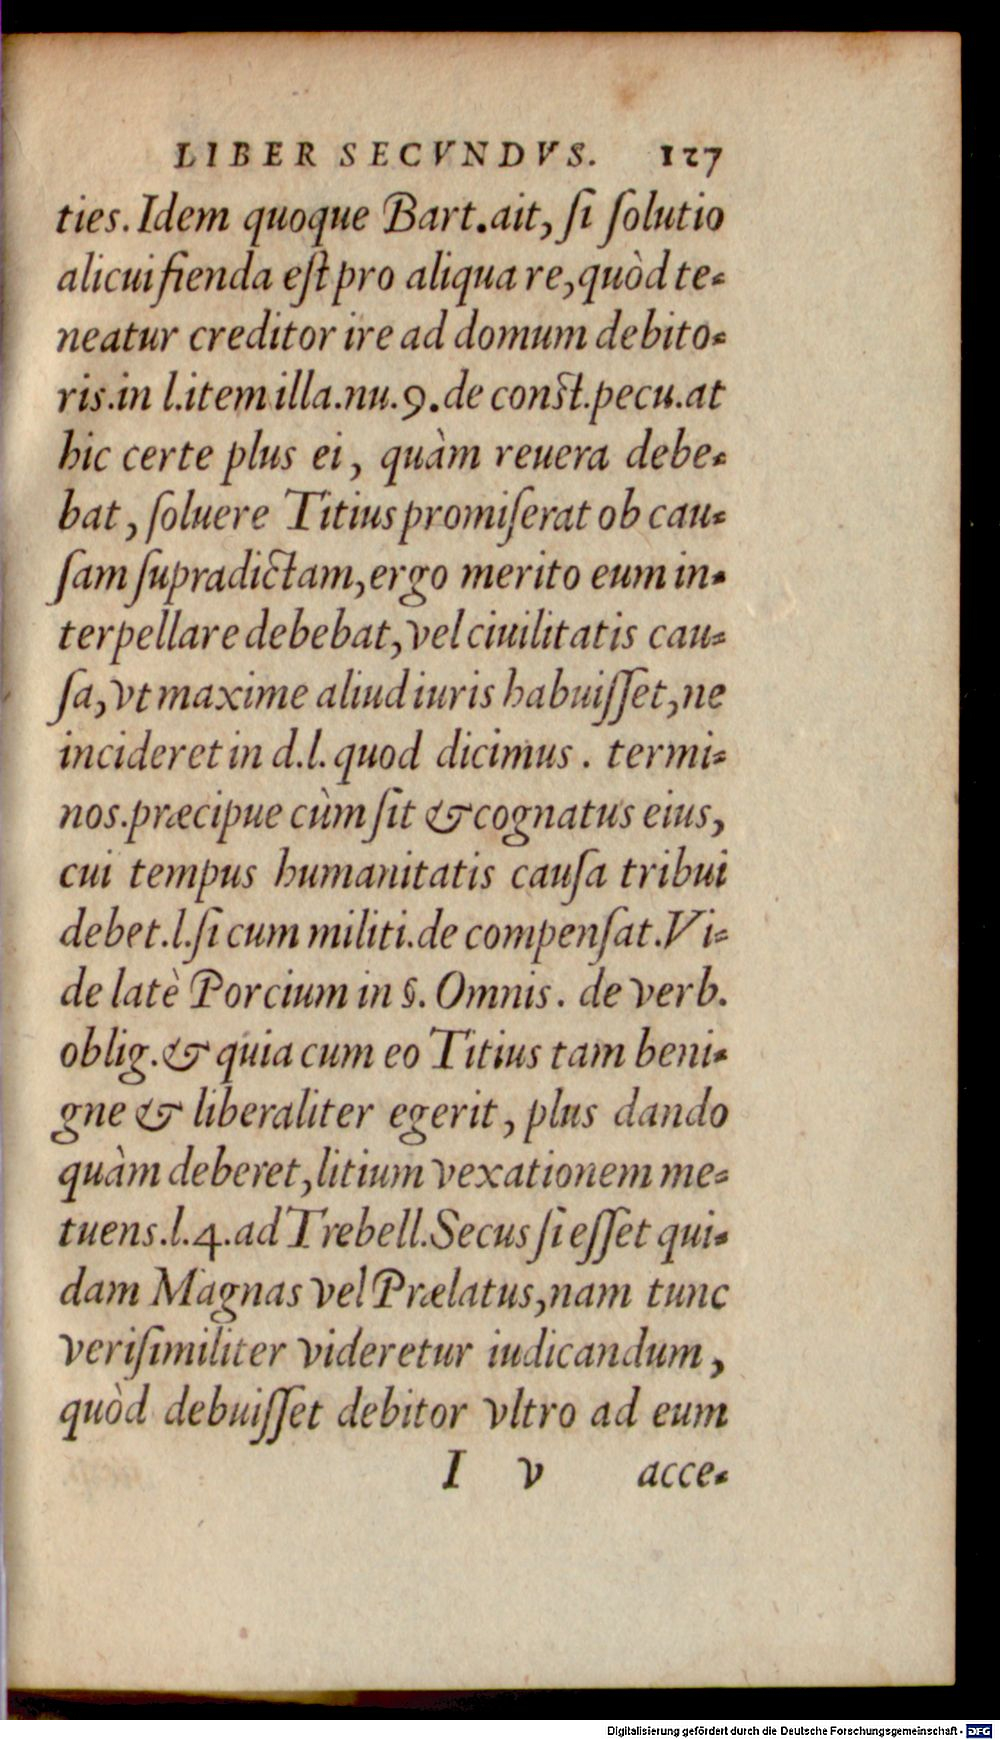 LIBER SECVNDVS. 127
ties. Idem quoque Bart. ait, ſi ſolutio
alicui fienda eſt pro aliqua re, quòd te-
neatur creditor ire ad domum debito-
ris. in l. item illa. nu. 9. de conſt. pecu. at
hic certe plus ei, quàm reuera debe-
bat, ſoluere Titius promiſerat ob cau-
ſam ſupradictam, ergo merito eum in-
terpellare debebat, vel ciuilitatis cau-
ſa, vt maxime aliud iuris habuiſſet, ne
incideret in d. l. quod dicimus. termi-
nos. præcipue cùm ſit & cognatus eius,
cui tempus humanitatis cauſa tribui
debet. l. ſi cum militi. de compenſat. Vi-
de latè Porcium in §. Omnis. de verb.
oblig. & quia cum eo Titius tam beni-
gne & liberaliter egerit, plus dando
quàm deberet, litium vexationem me-
tuens. l. 4. ad Trebell. Secus ſi eſſet qui-
dam Magnas vel Prælatus, nam tunc
veriſimiliter videretur iudicandum,
quòd debuiſſet debitor vltro ad eum
I v acce-
Digitalisierung gefördert durch die Deutsche Forschungsgemeinschaft - DFG